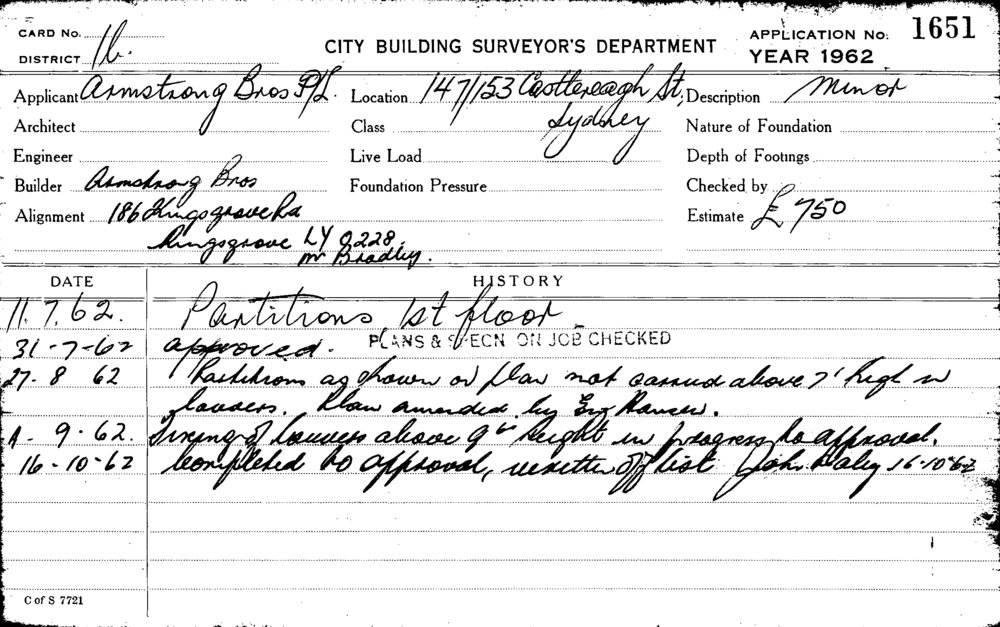 CARD No.
DISTRICT 1b.
CITY BUILDING SURVEYOR'S DEPARTMENT
APPLICATION No: 1651
YEAR 1962
Applicant Armstrong Bros P/L. Location 147/153 Castlereagh St, Description Minor
Sydney
Architect Class Nature of Foundation
Engineer Live Load Depth of Footings
Builder Armstrong Bros Foundation Pressure Checked by
Alignment 186 Kingsgrove Rd Estimate £750
Kingsgrove LY 0228.
Mr Bradley.
DATE HISTORY
11.7.62. Partitions 1st floor
31-7-62 approved. PLANS & SPECN ON JOB CHECKED
27.8 62 Partitions as shown on plan not carried above 7' high
louvers. Plan amended by
9.62. Fixing of louvers above height in progress to approval.
16-10-62 Completed to approval, off list John Daley 16-10-62
C of S 7721